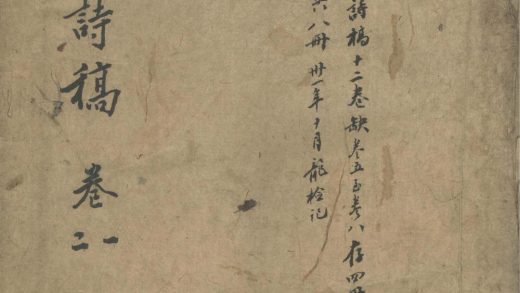 詩稿十二卷缺卷五至卷八存四冊
共八冊 卅一年十月龍檢記
詩稿 卷
一
二